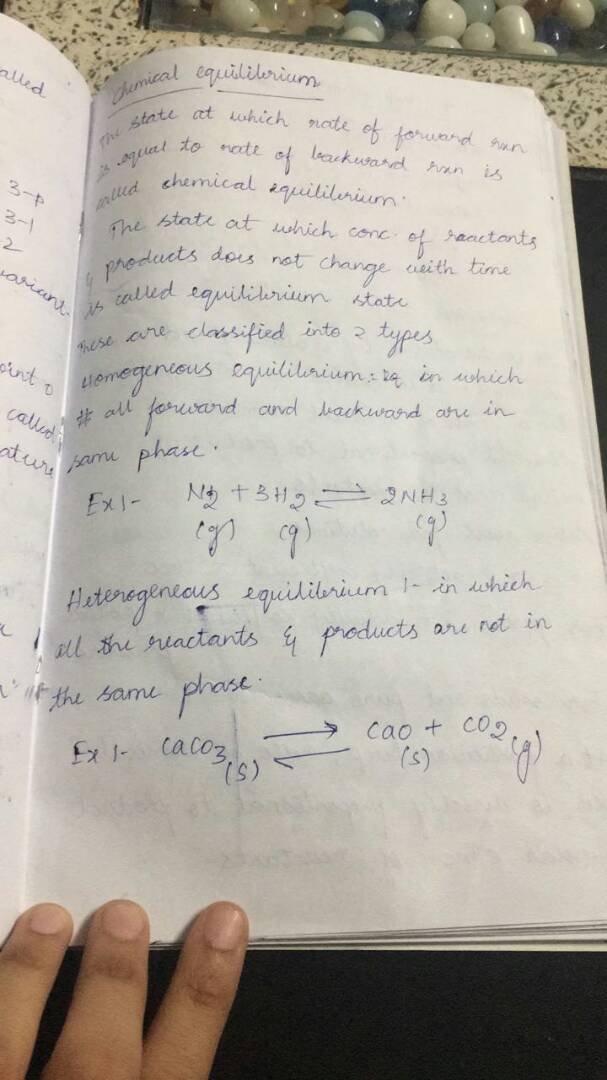 alled
3-p
3-1
2
variant.
oint o
called
ature
Chemical equilibrium
The state at which rate of forward rxn
is equal to rate of backward rxn is
called chemical equilibrium.
The state at which conc. of reactants
& products does not change with time
is called equilibrium state
These are classified into 2 types
Homogeneous equilibrium:- in which
# all forward and backward are in
same phase.
Ex 1- N2 + 3H2 ⇌ 2NH3
(g) (g) (g)
Heterogeneous equilibrium 1- in which
all the reactants & products are not in
the same phase.
Ex 1- CaCO3 (s) ⇌ CaO + CO2 (g)
(s)